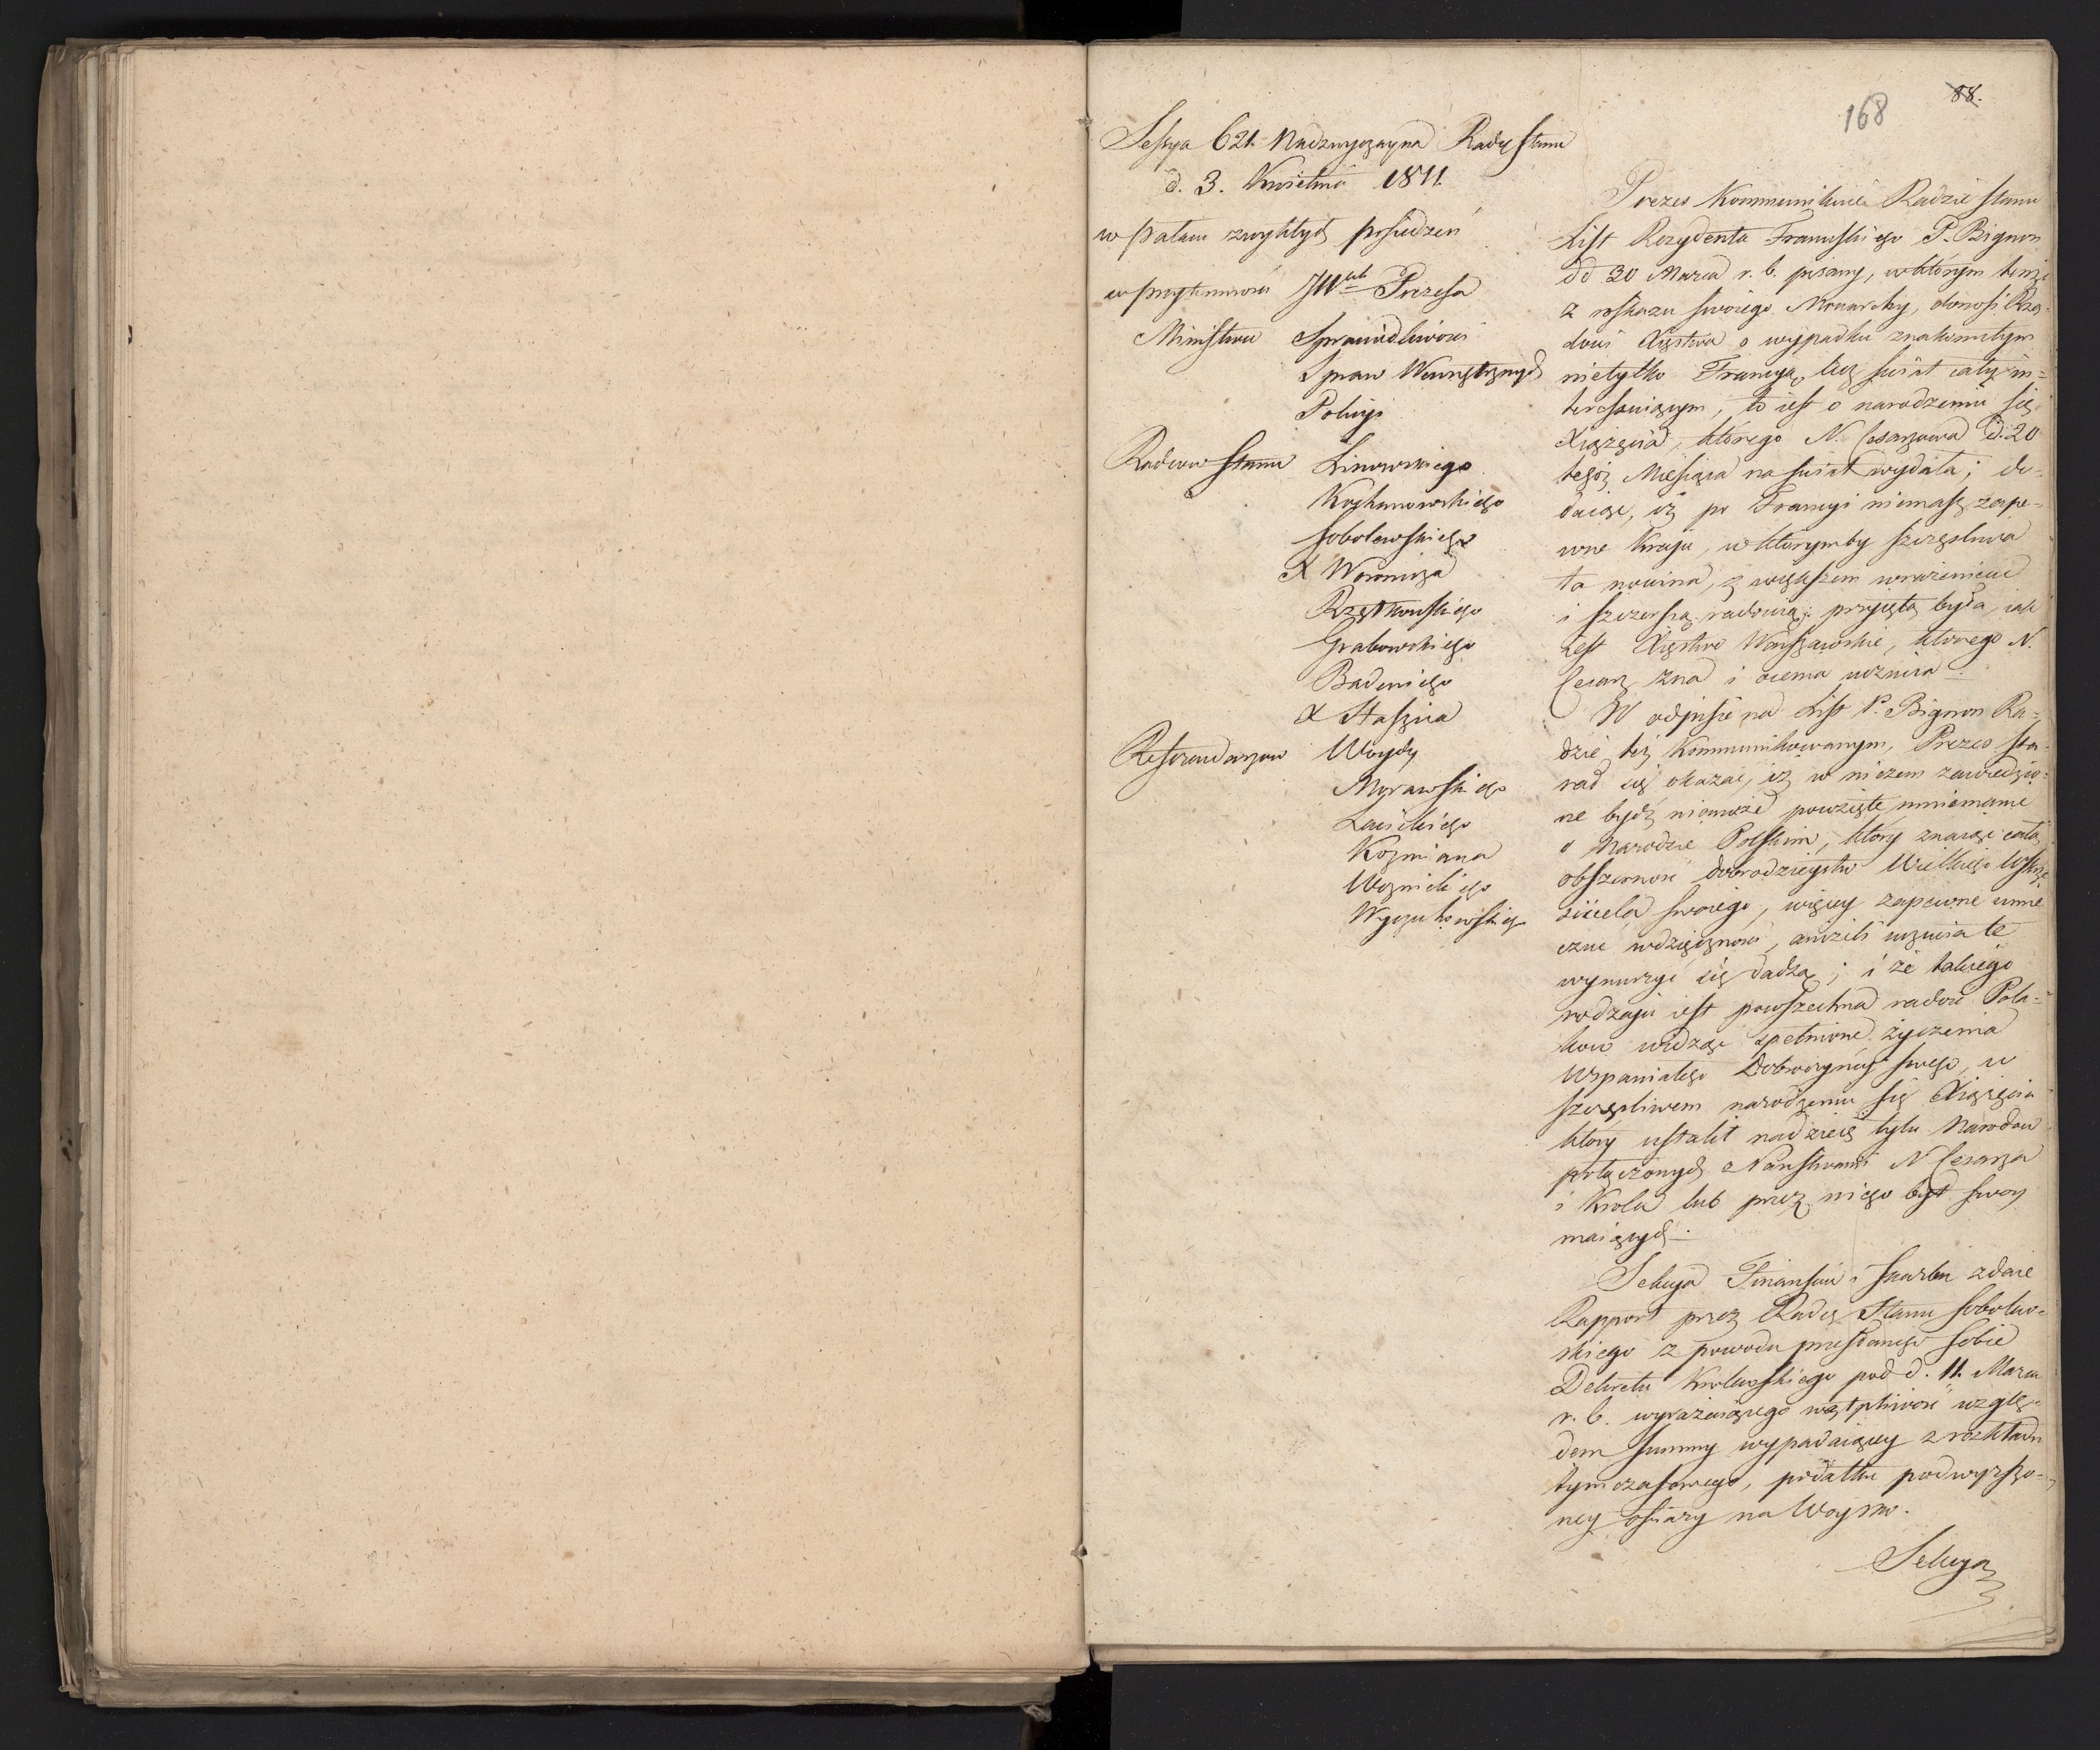 168
88.
Sessya 621. Nadzwyczayna Rady Stanu
d. 3. Kwietnia 1811.
w pałacu zwykłych posiedzeń
w przytomności JWch Prezesa
Ministrow Sprawiedliwości
Spraw Wewnętrznych
Policyi
Radcow Stanu Linowskiego
Kochanowskiego
Sobolewskiego
X Woronicza
Rzętkowskiego
Grabowskiego
Badeniego
X Staszica
Referendarzow Woydy
Morawskiego
Łaśickiego
Kozmiana
Woznickiego
Wyczechowskiego
Prezes Kommunikuie Radzie Stanu
List Rezydenta Francuskiego P. Bignon
dd 30 Marca r. b. pisany, w którym tenże
z roskazu swoiego Monarchy, donosi Rzą-
dowi Xięstwa o wypadku znakomitym
nietylko Francyą, lecz świat cały in-
teressuiącym, to iest o narodzeniu się
Xiążęcia, którego N. Cesarzowa d. 20
tegoż Miesiąca na świat wydała; do-
daiąc, iż po Francyi niemasz zape-
wne Kraju, w którymby szczęśliwa
ta nowina, z większem wrażeniem
i szczerszą radością przyięta była, iak
iest Xięstwo Warszawskie, ktorego N.
Cesarz zna i ocenia uczucia.
W odpisie na List P. Bignon Ra-
dzie też Kommunikowanym, Prezes sta-
rał się okazać, iż w niczem zawiedzio-
ne bydź niemoże powzięte mniemanie
o Narodzie Polskim, który znaiąc całą
obszerność dobrodzieystw Wielkiego Wskrze-
siciela swoiego, więcey zapewne umie
czuć wdzięczności, aniżeli uczucia te
wynurzyć się dadzą; i że takiego
rodzaju iest powszechna radość Pola-
kow widząc spełnione życzenia
Wspaniałego Dobroczyńcy swego, w
szczęśliwem narodzeniu się Xiążęcia
który ustalił nadzieię tylu Narodow
połączonych z Państwami N Cesarza
i Krola lub przez niego byt swoy
maiących.
Sekcya Finansow i Skarbu zdaie
Rapport przez Radcę Stanu Sobolew-
skiego z powodu przesłanego sobie
Dekretu Krolewskiego pod d. 11. Marca
r. b. wyrażaiącego wątpliwość wzglę-
dem Summy wypadaiącey z rozkładu
tymczasowego, podatku podwyższo-
ney ofiary na Woysko.
Sekcya